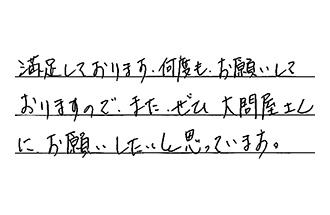 満足しております。何度も、お願いして
おりますので、また、ぜひ 大問屋さん
に、お願いしたいと思っています。